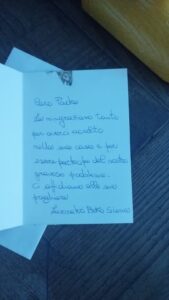 Caro Padre
La ringraziamo tanto
per averci accolto
nella sua casa e per
essere partecipe del nostro
gravoso problema.
Ci affidiamo alle sue
preghiere